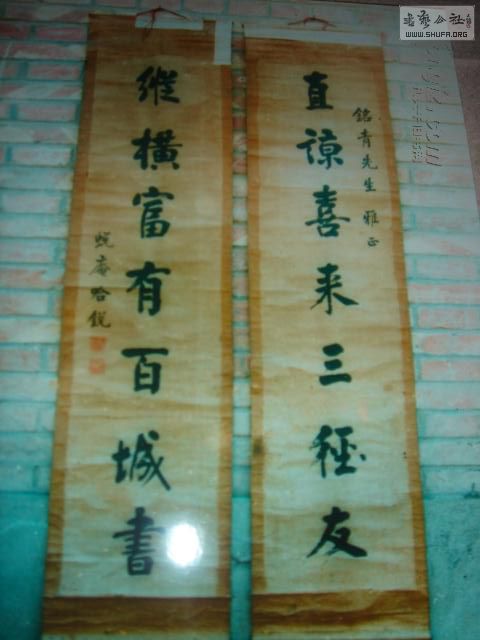 直諒喜来三徑友
銘青先生 雅正
縱橫富有百城書
蜕庵哈銳
書藝公社
WWW.SHUFA.ORG